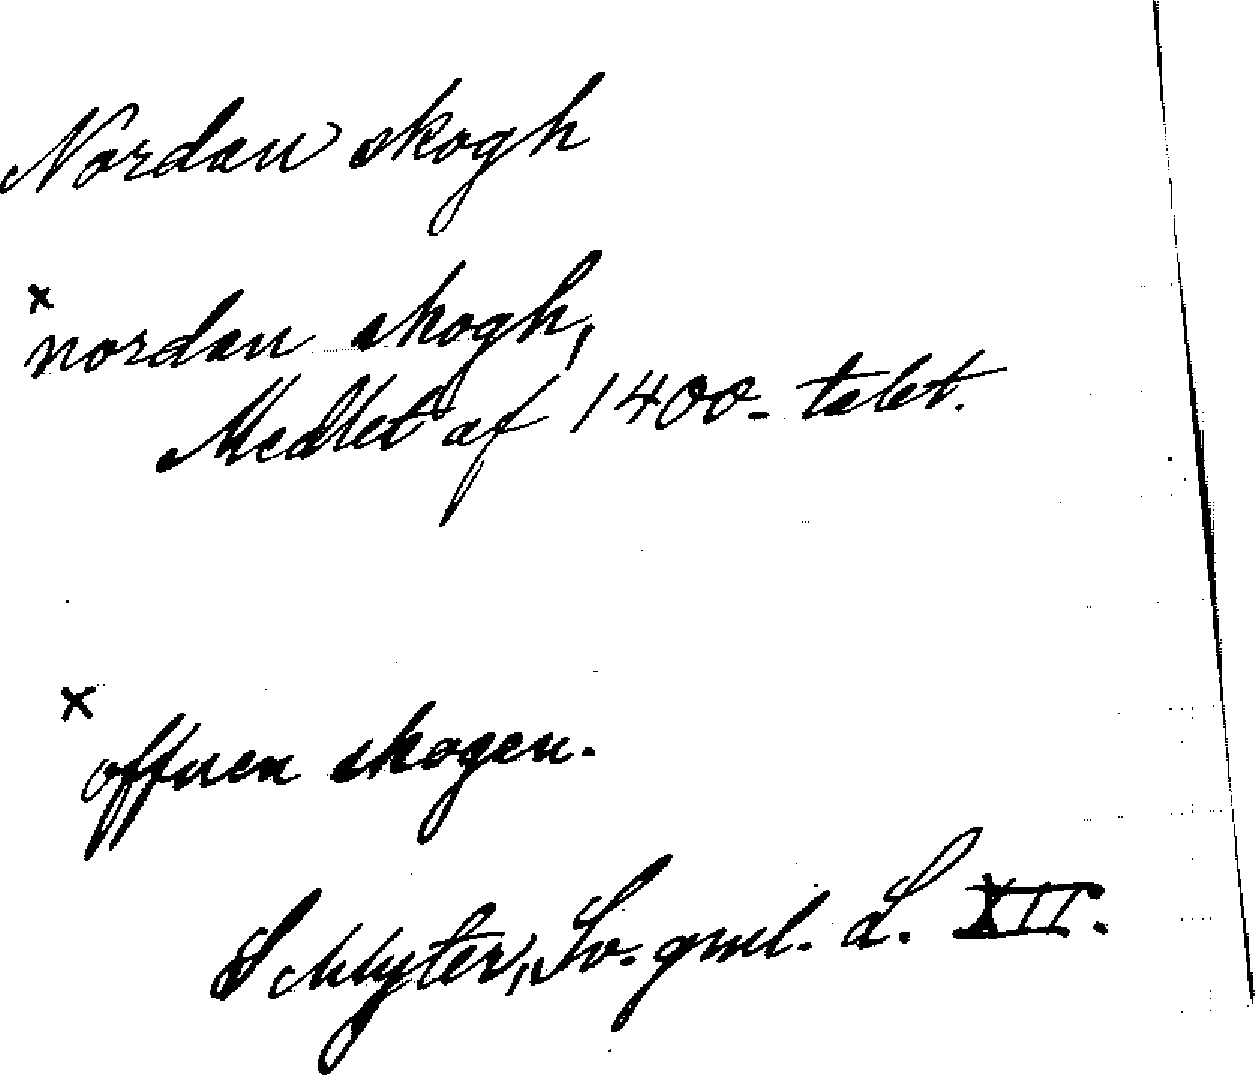 Nordan skogh
x
nordan skogh,
Medlet af 1400-talet.
x
offuen skogen.
Schlyter, Sv. gml. L. XII.